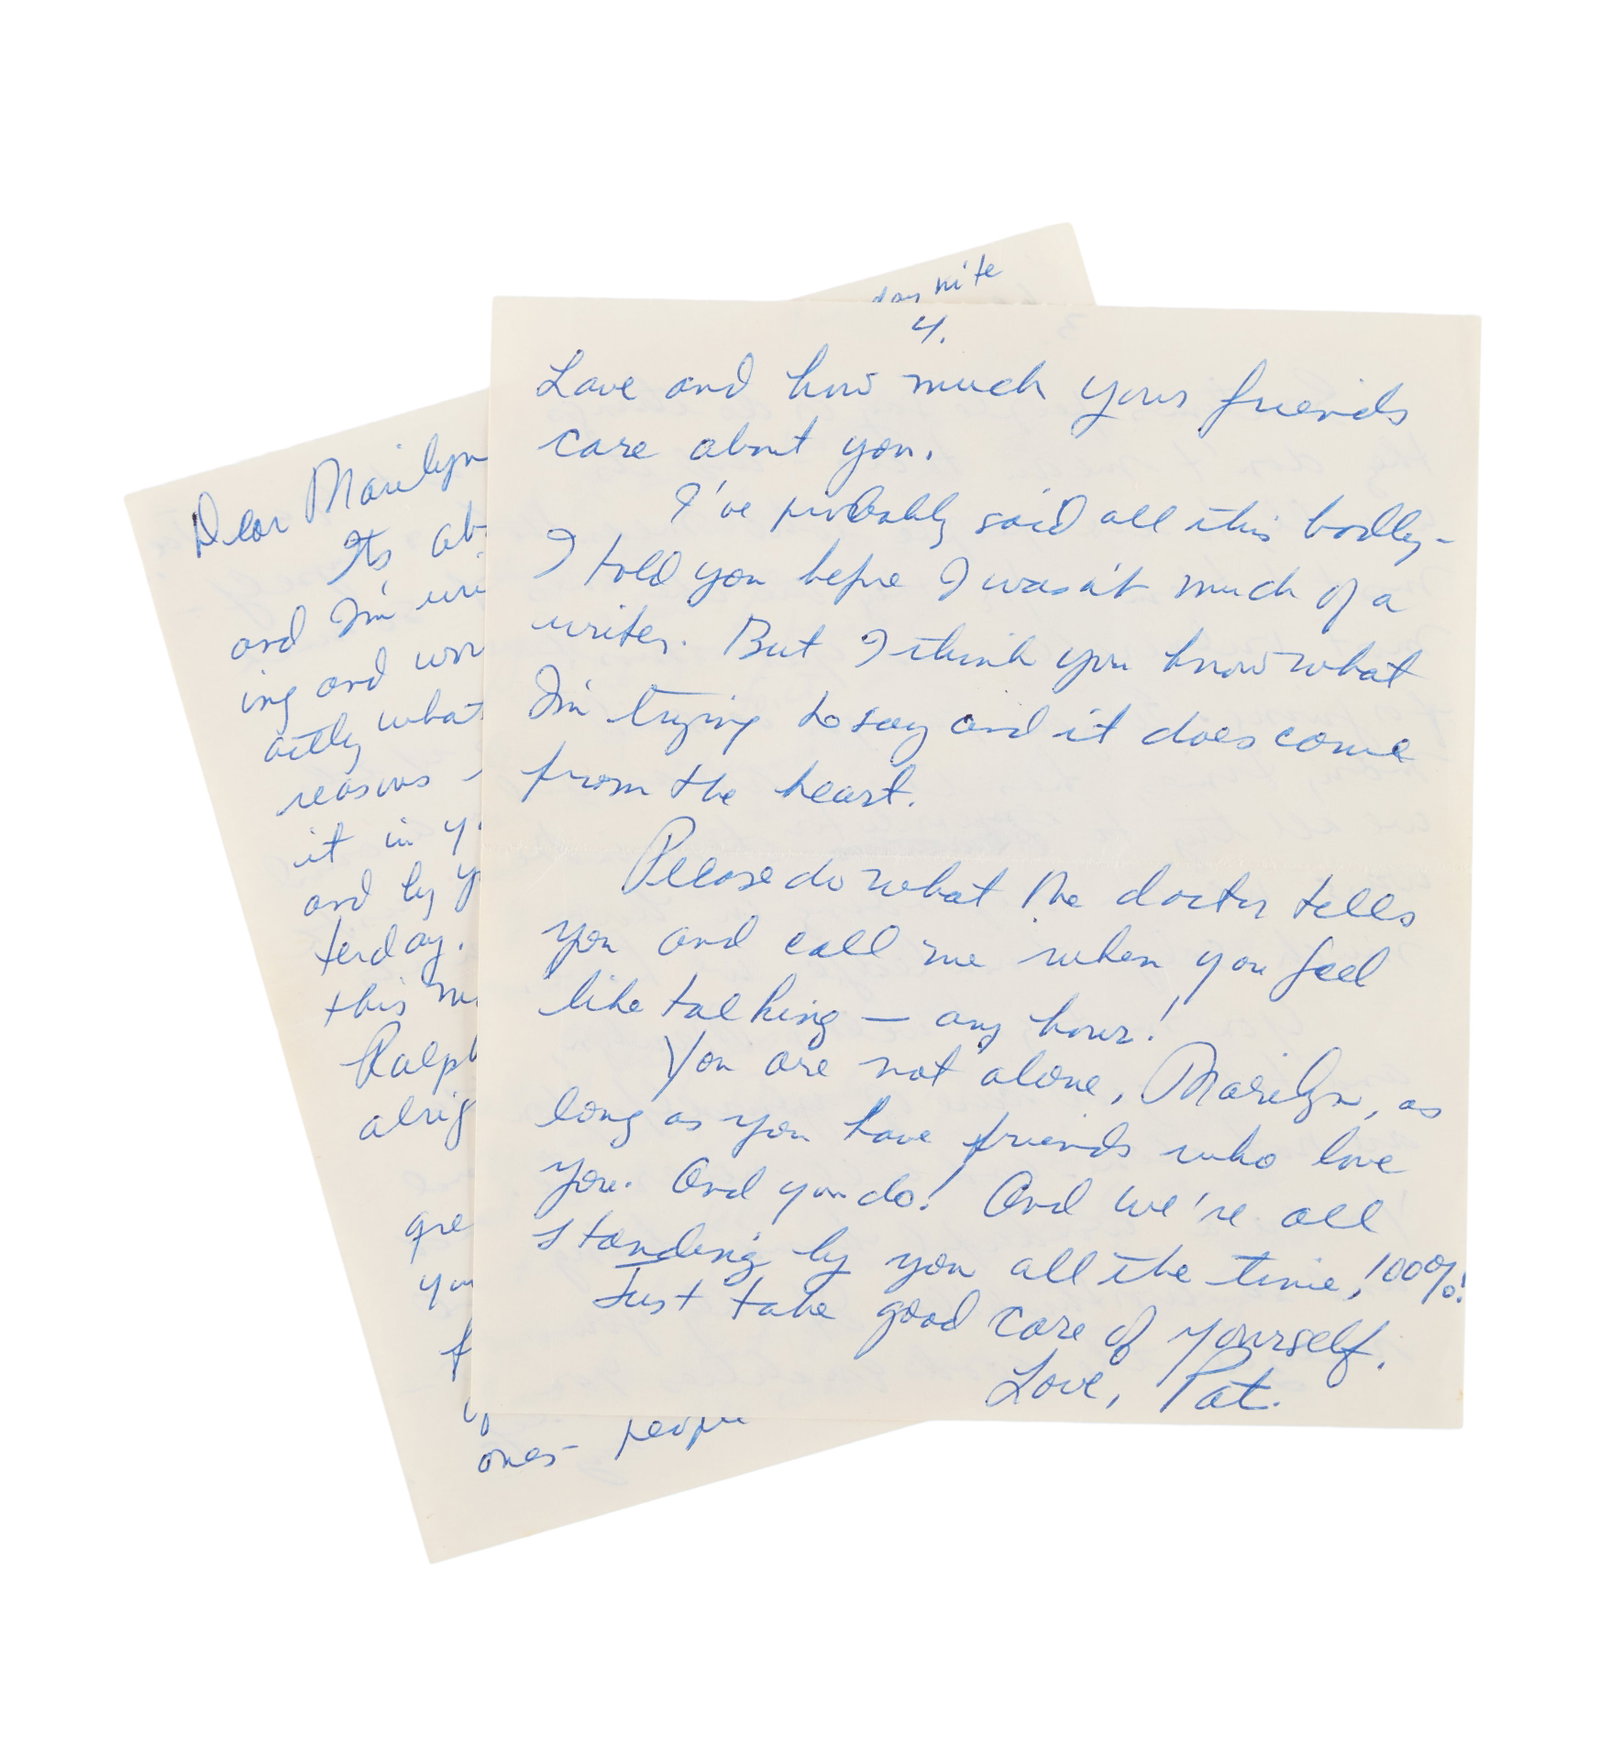 nite
Dear Marilyn
Its
and I'm
ing and
actly what
reasons
it in
and by
terday.
this
Ralph
ones - people
4.
Love and how much your friends
care about you.
I've probably said all this badly -
I told you before I wasn't much of a
writer. But I think you know what
I'm trying to say and it does come
from the heart.
Please do what the doctor tells
you and call me when you feel
like talking — any hour!
You are not alone, Marilyn, as
long as you have friends who love
you. And you do! And we're all
standing by you all the time, 100%!
Just take good care of yourself.
Love, Pat.